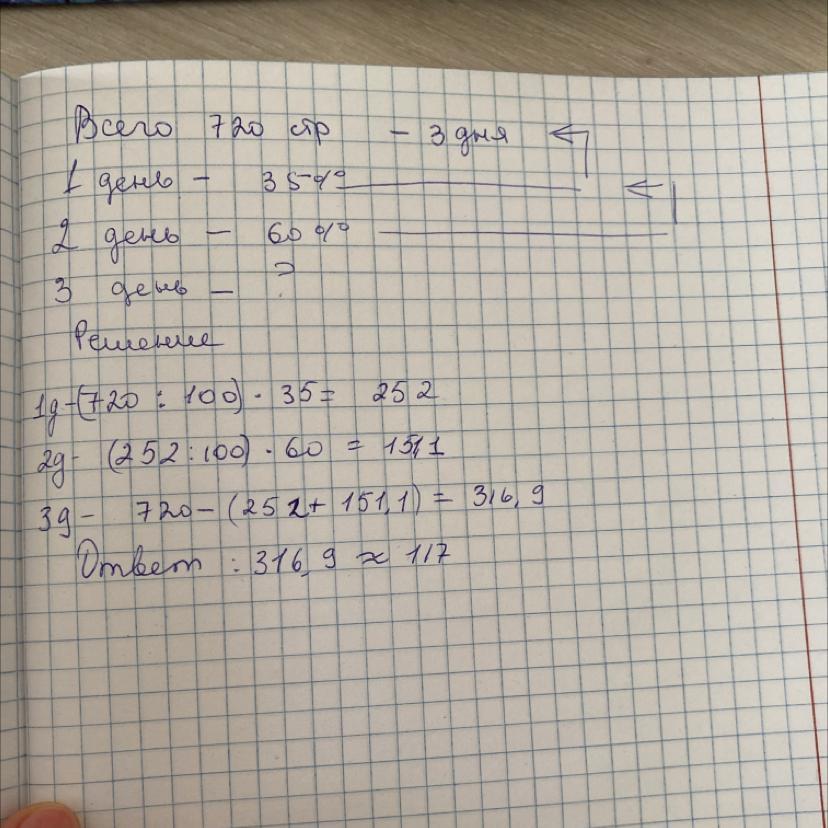 Всего 720 стр - 3 дня
1 день - 35%
2 день - 60%
3 день - ?
Решение
1д-(720 : 100) · 35 = 252
2д- (252:100) · 60 = 151,1
3д- 720-(252+ 151,1) = 316,9
Ответ : 316,9 ≈ 117